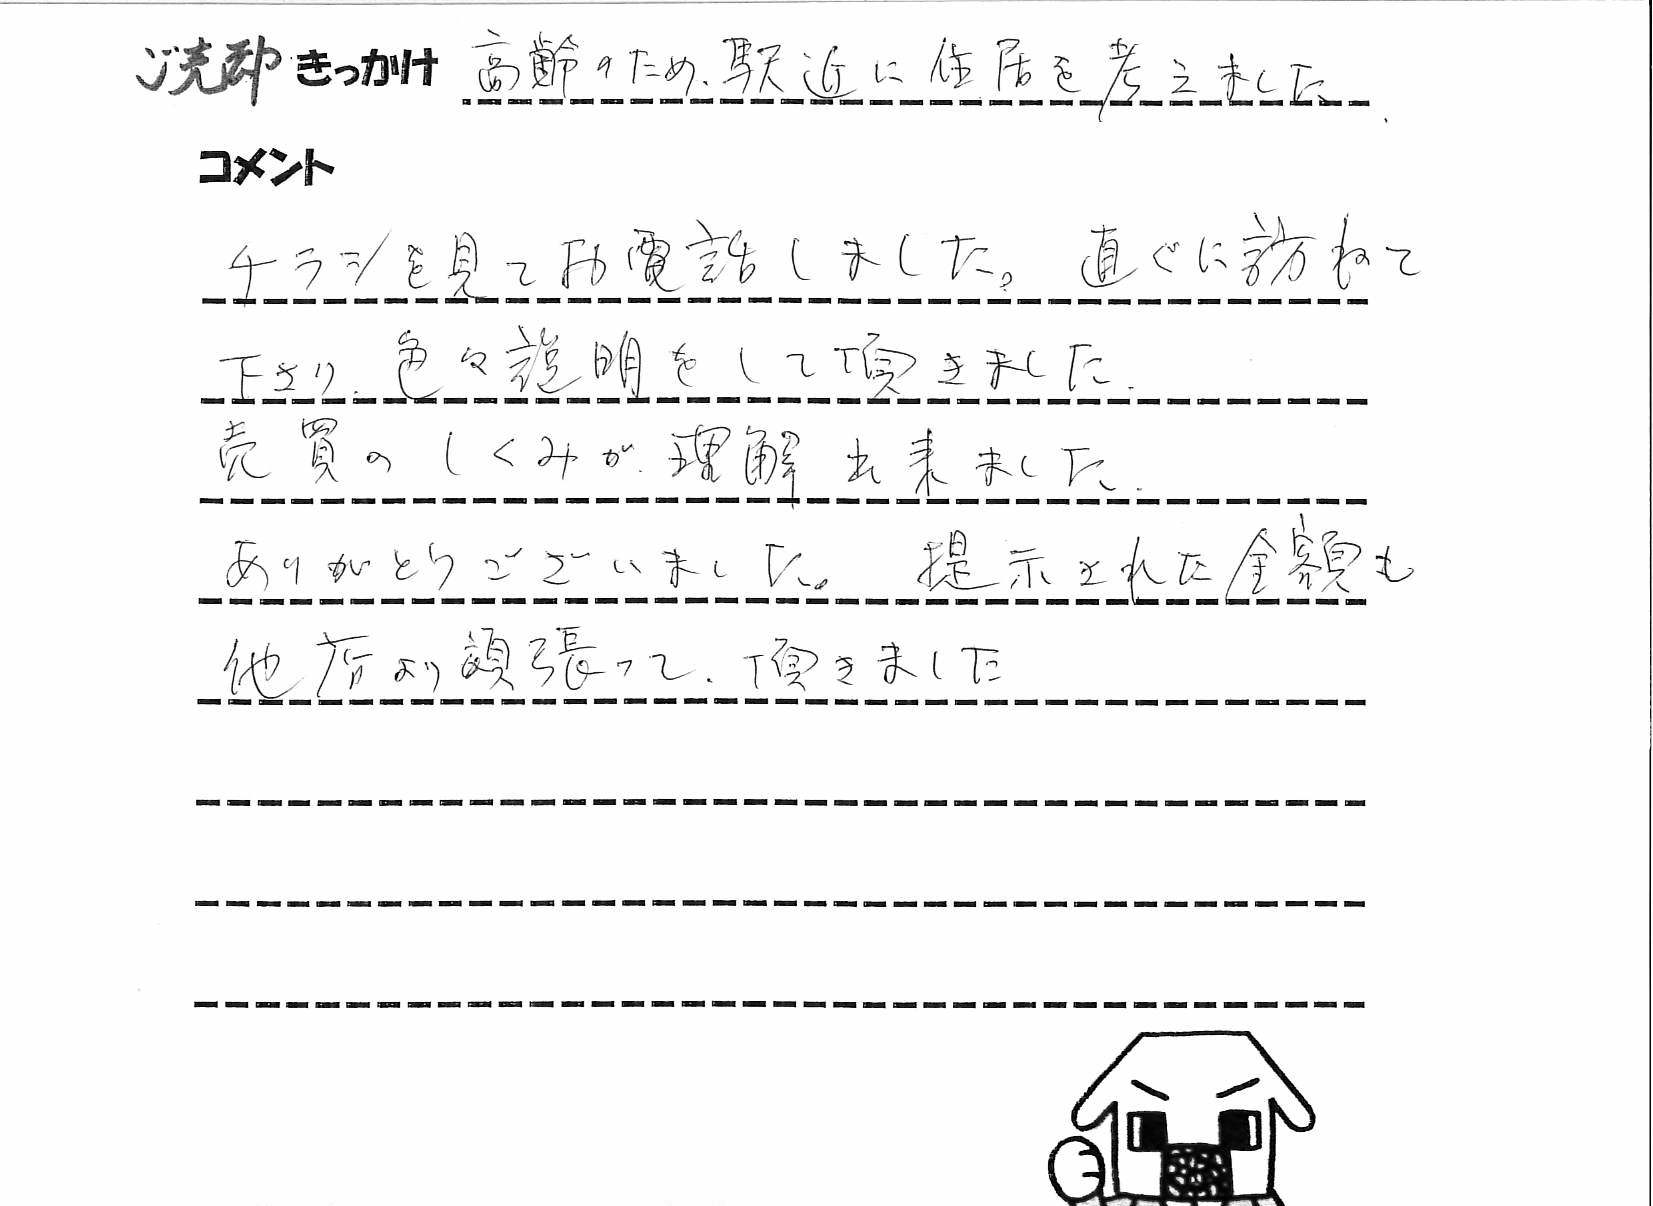 ご売却 きっかけ 高齢のため、駅近に住居を考えました.
コメント
チラシを見てお電話しました。直ぐに訪ねて
下さり、色々説明をして頂きました.
売買のしくみが理解出来ました.
ありがとうございました。提示された金額も
他店より頑張って、頂きました